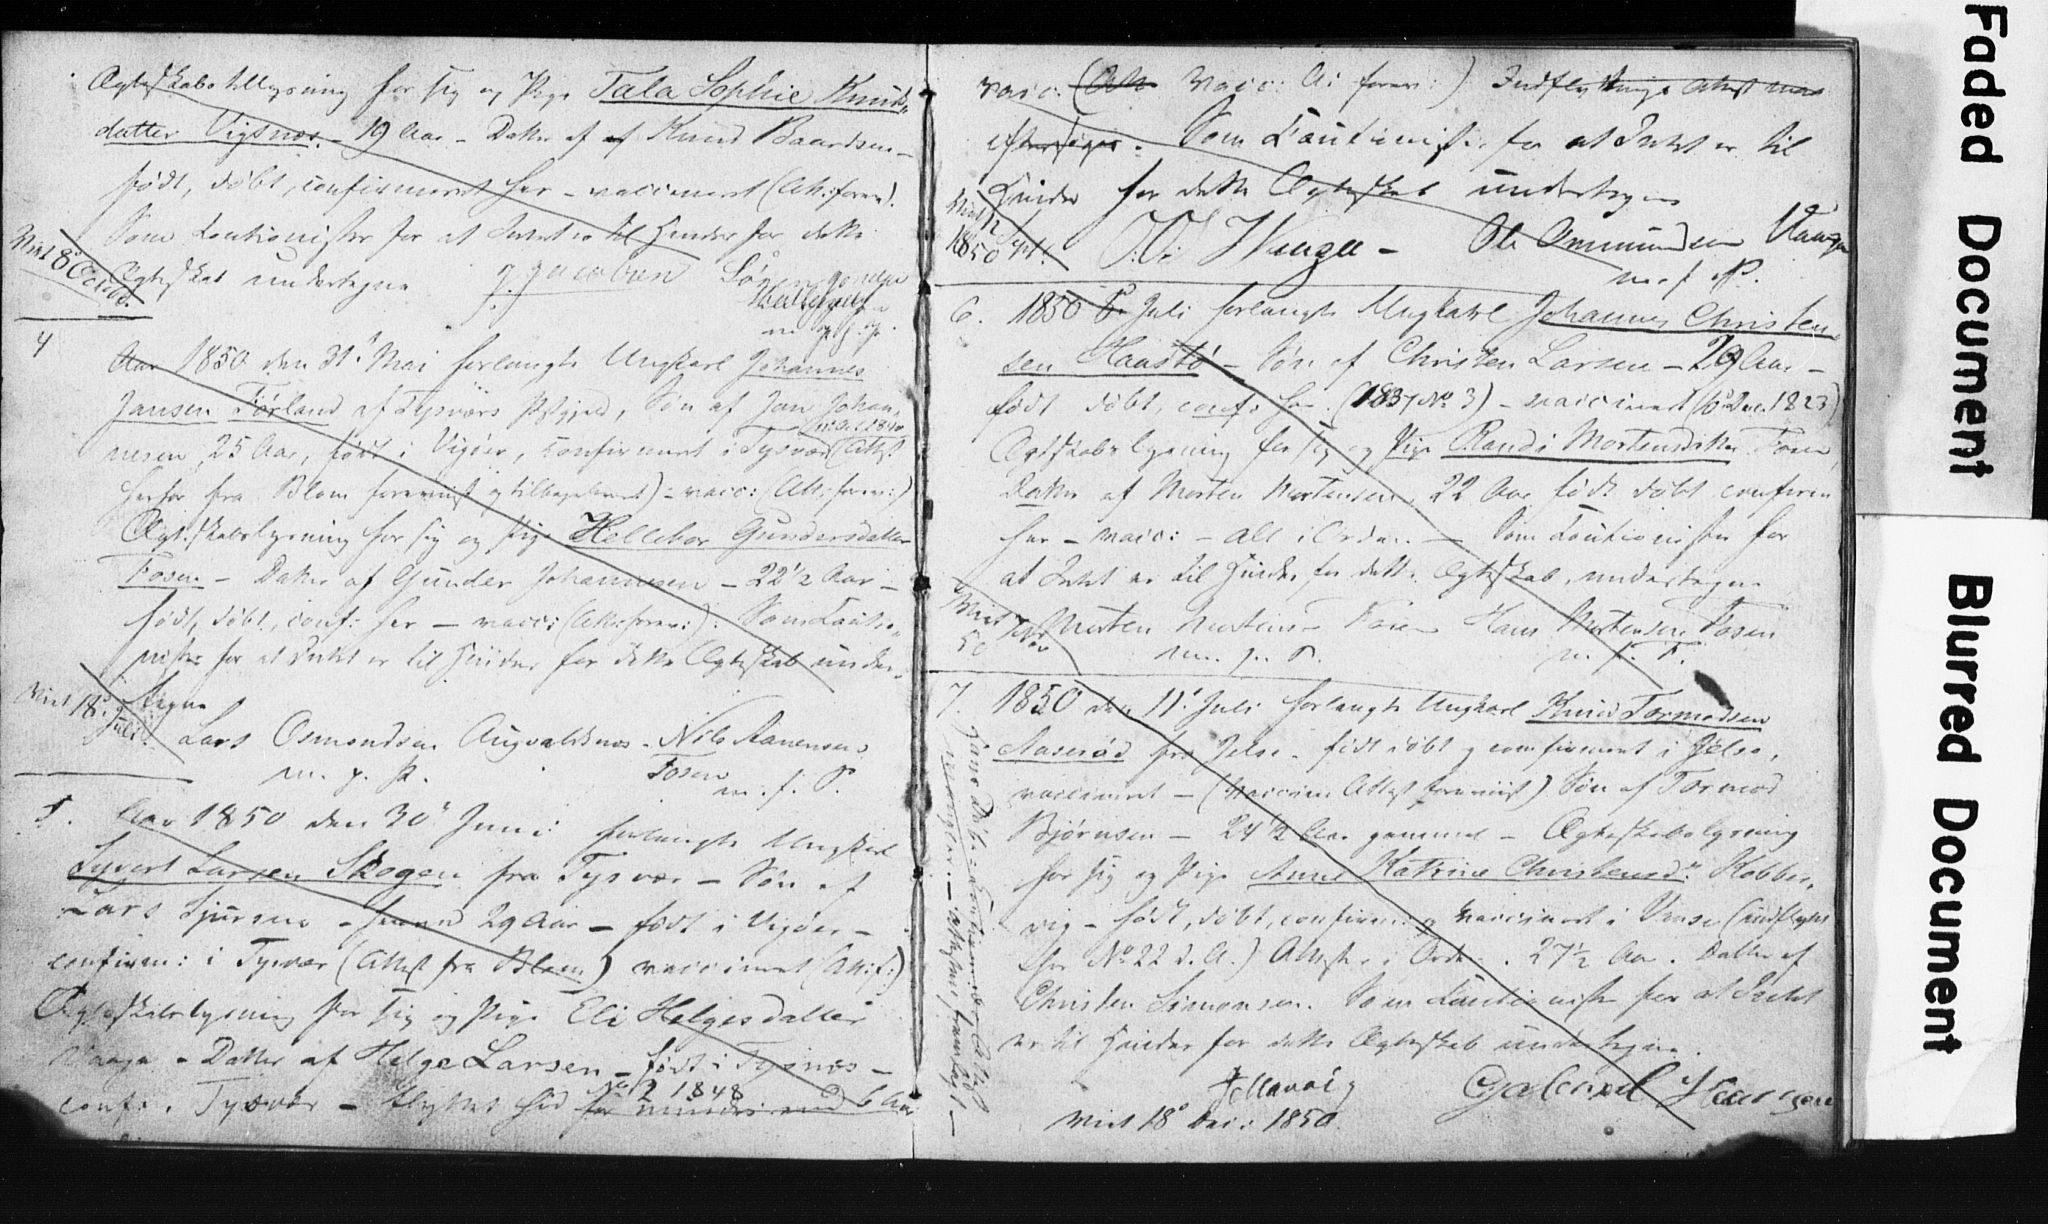 Ægteskabs tillysning for sig og Pige Tala Sophie Knuds
datter Vigsnæs. 19 Aar – Datter af Knud Baardsen –
født, døbt, confirmeret her – vaccineret (Att: forev:).
Som Cautionister for at Intet er til Hinder for dette
Viet 8de Octobr.
Ægteskab undertegne J. Jacobsen Søren
m. f. P.
4
Aar 1850 den 31' Mai forlangte Ungkarl Johannes
Jansen Førland af Tysvørs Præstegjeld, Søn af Jan Johan-
nesen, 25 Aar, født i Vigøer, confirmeret i Tysvær (Attest
herfor fra Blom foreviist og tilbageleveret) – vacc: (Att: forev:)
Ægteskabslysning for sig og Pige Hellebor Gundersdatter
Fosen – Datter af Gunder Johannesen – 22 1/2 Aar –
født, døbt, conf: her – vacc: (Att: forev:): Som Cautio-
nister for at Intet er til Hinder for dette Ægteskab under-
tegne
Viet 18de Juli
Lars Osmondsen Augvaldsnes – Nils Aanensen
Fosen
m. p. P. m. f. P.
5. Aar 1850 den 30' Juni forlangte Ungkarl
Syvert Larsen Skogen fra Tysvær – Søn af
Lars Sjursen – 29 Aar – født i Vigøer –
confirm: i Tysvær (Attest fra Blom) vaccineret (Att: f:)
Ægteskabslysning for sig og Pige Eli Helgesdatter
Vaaga – Datter af Helge Larsen – født i Tysnæs –
No 2 1848
conf: i Tysvær – flyttet hid for mindre end 6 Aar
vacc. (Att: vacc: At: forev:) Indflytnings Attest maa
eftersees. Som Cautionister for at Intet er til
Hinder for dette Ægteskab undertegne
Viet 12 Sept. 1850
Ole Ommundsen Vaaga
m. f. P.
6. 1850 5. Juli forlangte Ungkarl Johannes Christen-
sen Haastø – Søn af Christen Larsen – 29 Aar –
født døbt, conf: her (1837 No 3) – vaccineret (6 Dec. 1823)
Ægteskabslysning for sig og Pige Randi Mortensdatter Fosen,
Datter af Morten Mortensen, 22 Aar født døbt confirm
her – vacc: – Alt i Orden. – Som Cautionister for
at Intet er til Hinder for dette Ægteskab, undertegne
Viet
50
Morten Mortensen Fosen Hans Mortensen Fosen
m. p. P. m. f. P.
7. 1850 den 11' Juli forlangte Ungkarl Knud Tormodsen
Aaserød fra Jelse – født døbt og confirmeret i Jelse,
vaccineret – (Vaccine Attest foreviist) Søn af Tormod
Bjørnsen – 24 1/2 Aar gammel – Ægteskabslysning
for sig og Pige Anne Katrine Christensd: Kobber-
vig – født, døbt, confirm: og vaccineret i (indflyttet
her No 22 d. A.) Attester i Orden. 27 1/2 Aar. Datter af
Christen Simonsen. Som Cautionister for at Intet
er til Hinder for dette Ægteskab undertegne.
Gabriel
Viet 18de Dec: 1850.
Hans Døbe- Confirmations Attest
mangler. – 
Faded Document
Blurred Document